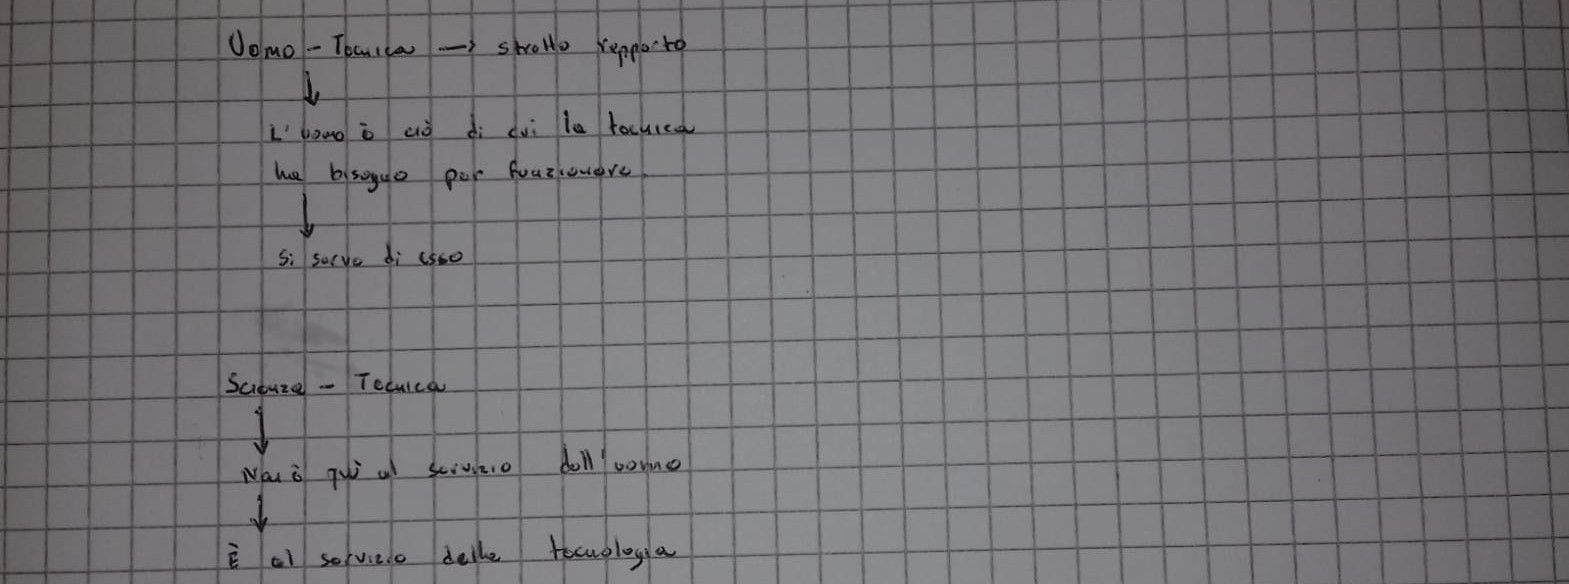 Uomo - Tecnica → stretto rapporto
↓
L'uomo è ciò di cui la tecnica
ha bisogno per funzionare.
↓
Si serve di esso
Scienza - Tecnica
↓
Non è qui al servizio dell'uomo
↓
È al servizio della tecnologia